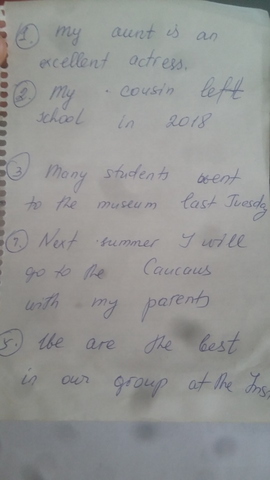 1. My aunt is an
excellent actress.
2. My cousin left
school in 2018
3. Many students went
to the museum last Tuesday
4. Next summer I will
go to the Caucaus
with my parents
5. We are the best
in our group at the